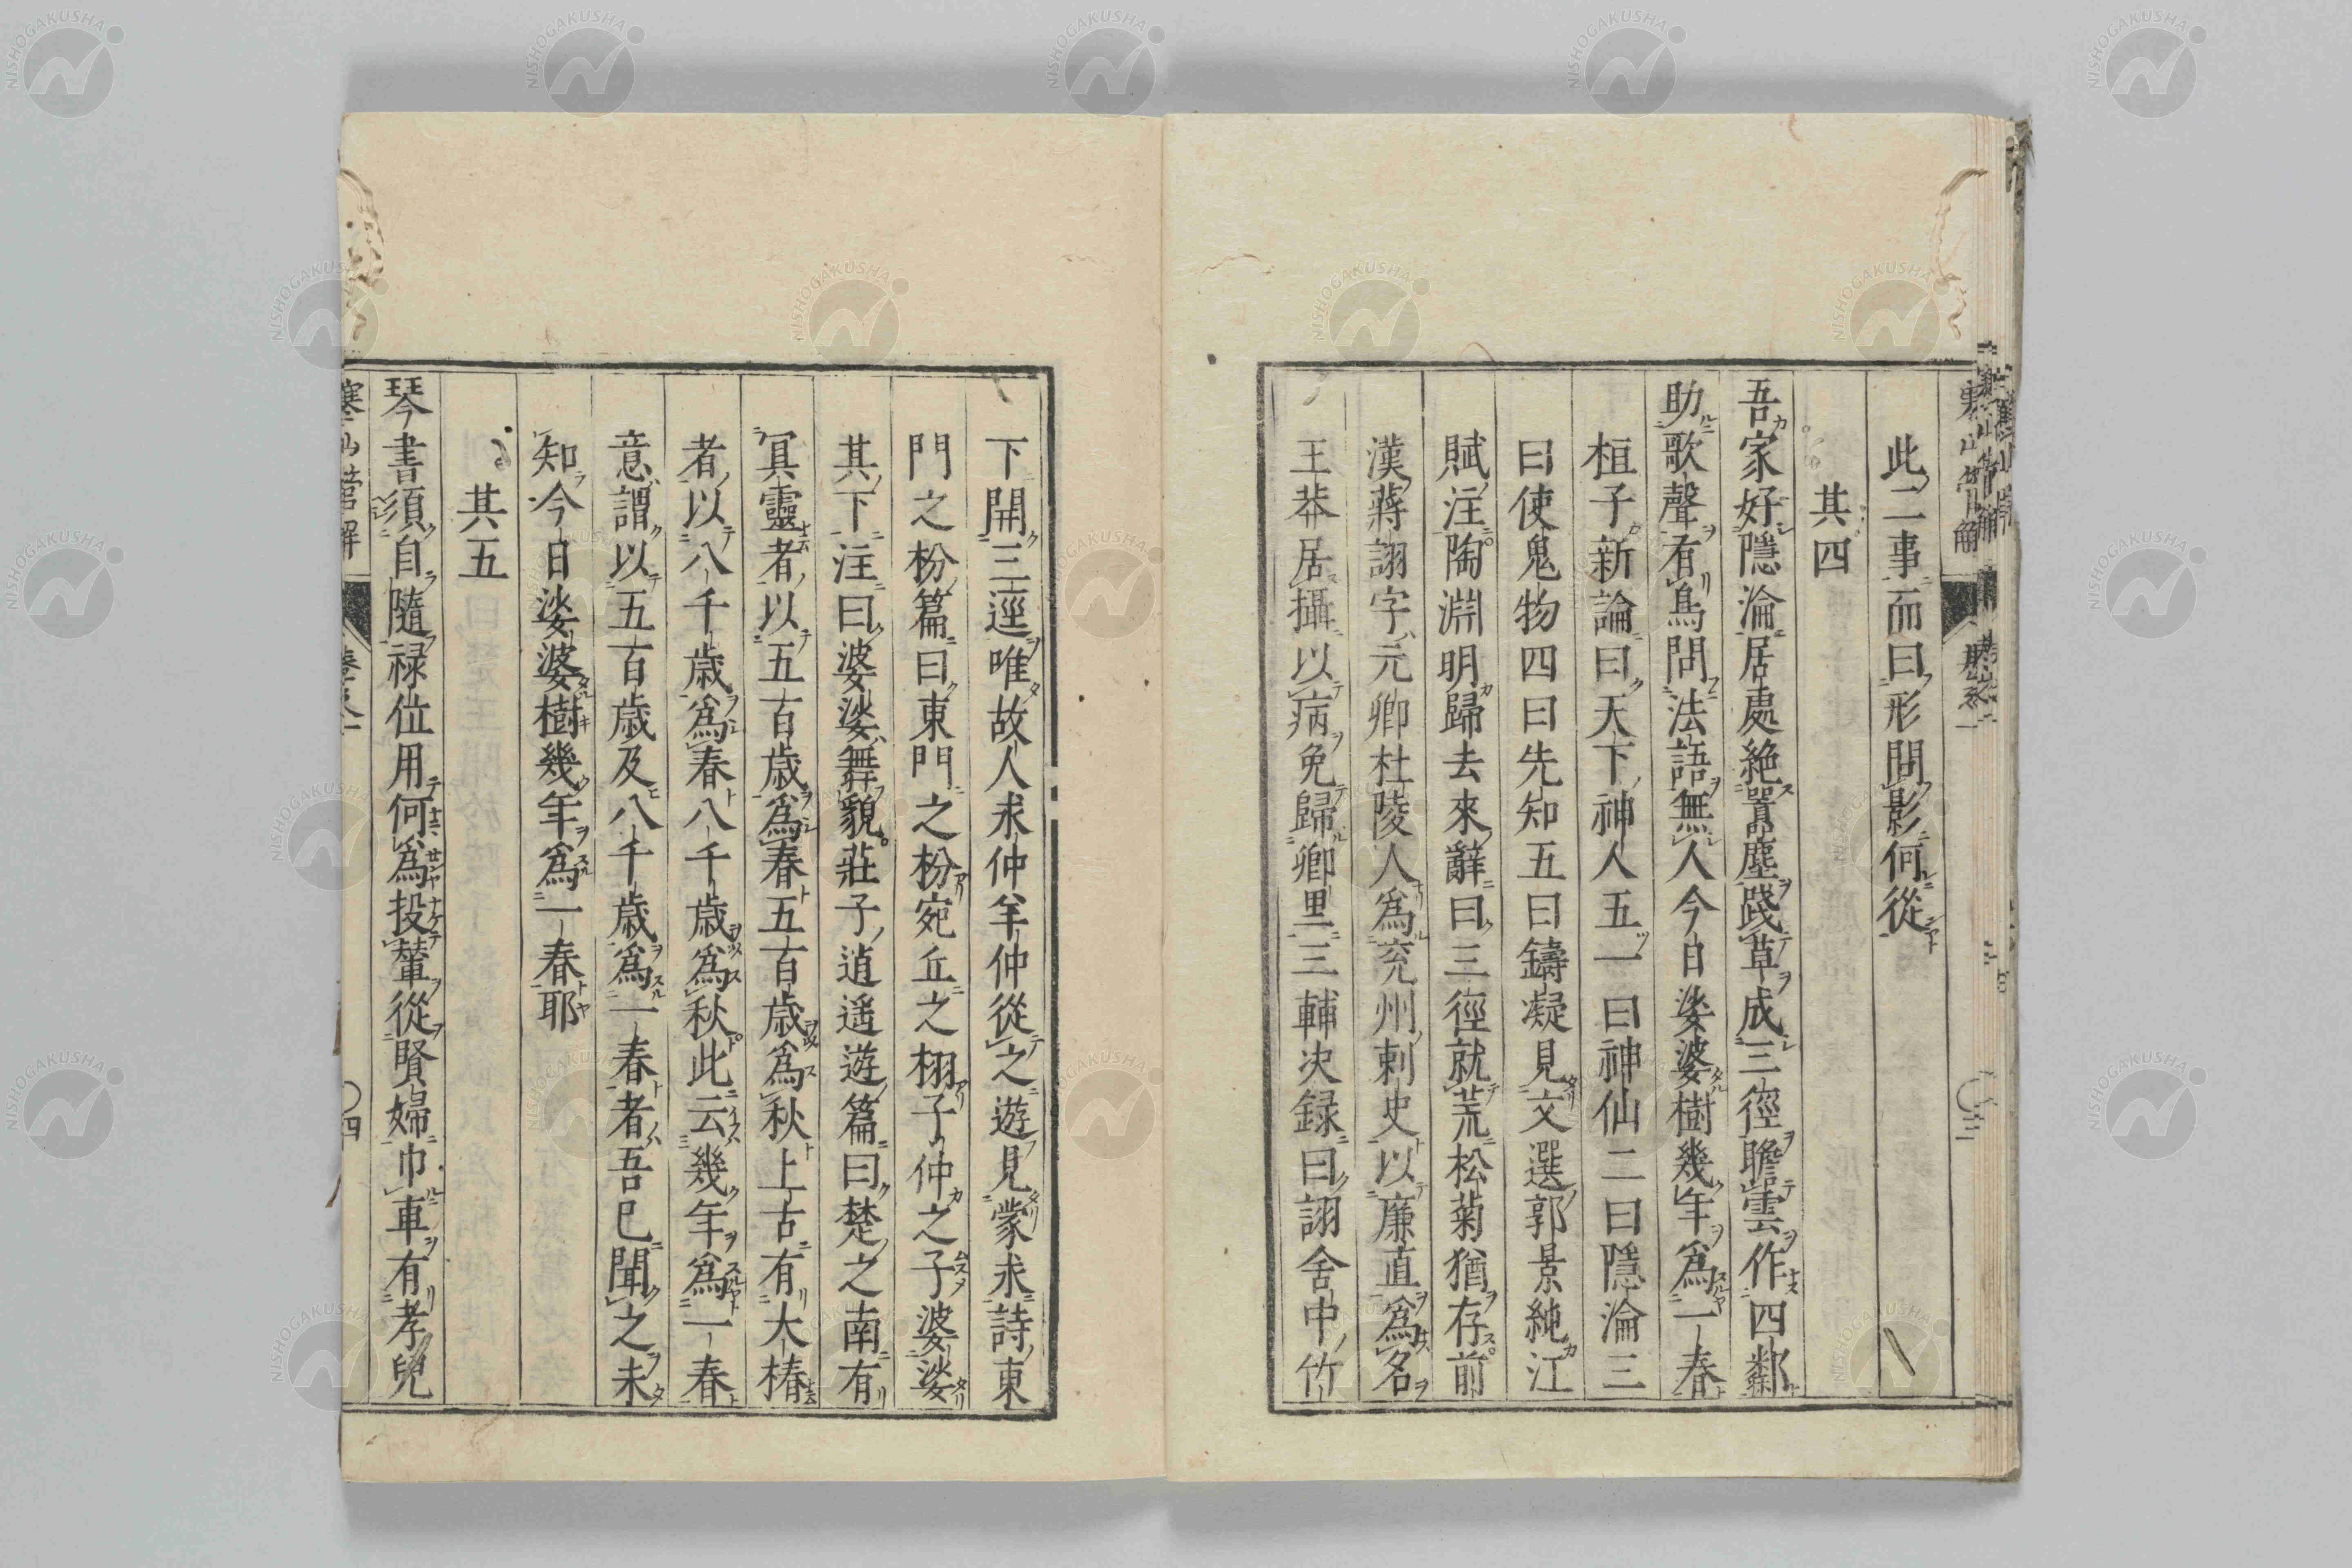 此二事而曰形問影何從
其四
吾家好隱淪居處絶囂塵踐草成三徑瞻雲作四鄰
助歌聲有鳥問法語無人今日娑婆樹幾年爲一春
桓子新論曰天下神人五一曰神仙二曰隱淪三
曰使鬼物四曰先知五曰鑄凝見文選郭景純江
賦注陶淵明歸去來辭曰三徑就荒松菊猶存前
漢蔣詡字元卿杜陵人爲兗州刺史以廉直爲名
王莽居攝以病免歸卿里三輔决録曰詡舍中竹
下開三逕唯故人求仲羊仲從之遊見蒙求詩東
門之枌篇曰東門之枌宛丘之栩子仲之子婆娑
其下注曰婆娑舞貌莊子逍遙遊篇曰楚之南有
冥靈者以五百歳爲春五百歳爲秋上古有大椿
者以八千歳爲春八千歳爲秋此云幾年爲一春
意謂以五百歳及八千歳爲一春者吾已聞之未
知今日娑婆樹幾年爲一春耶
其五
琴書須自隨禄位用何爲投輦從賢婦巾車有孝兒
寒山詩管解 卷之一 〇四
NISHOGAKUSHA